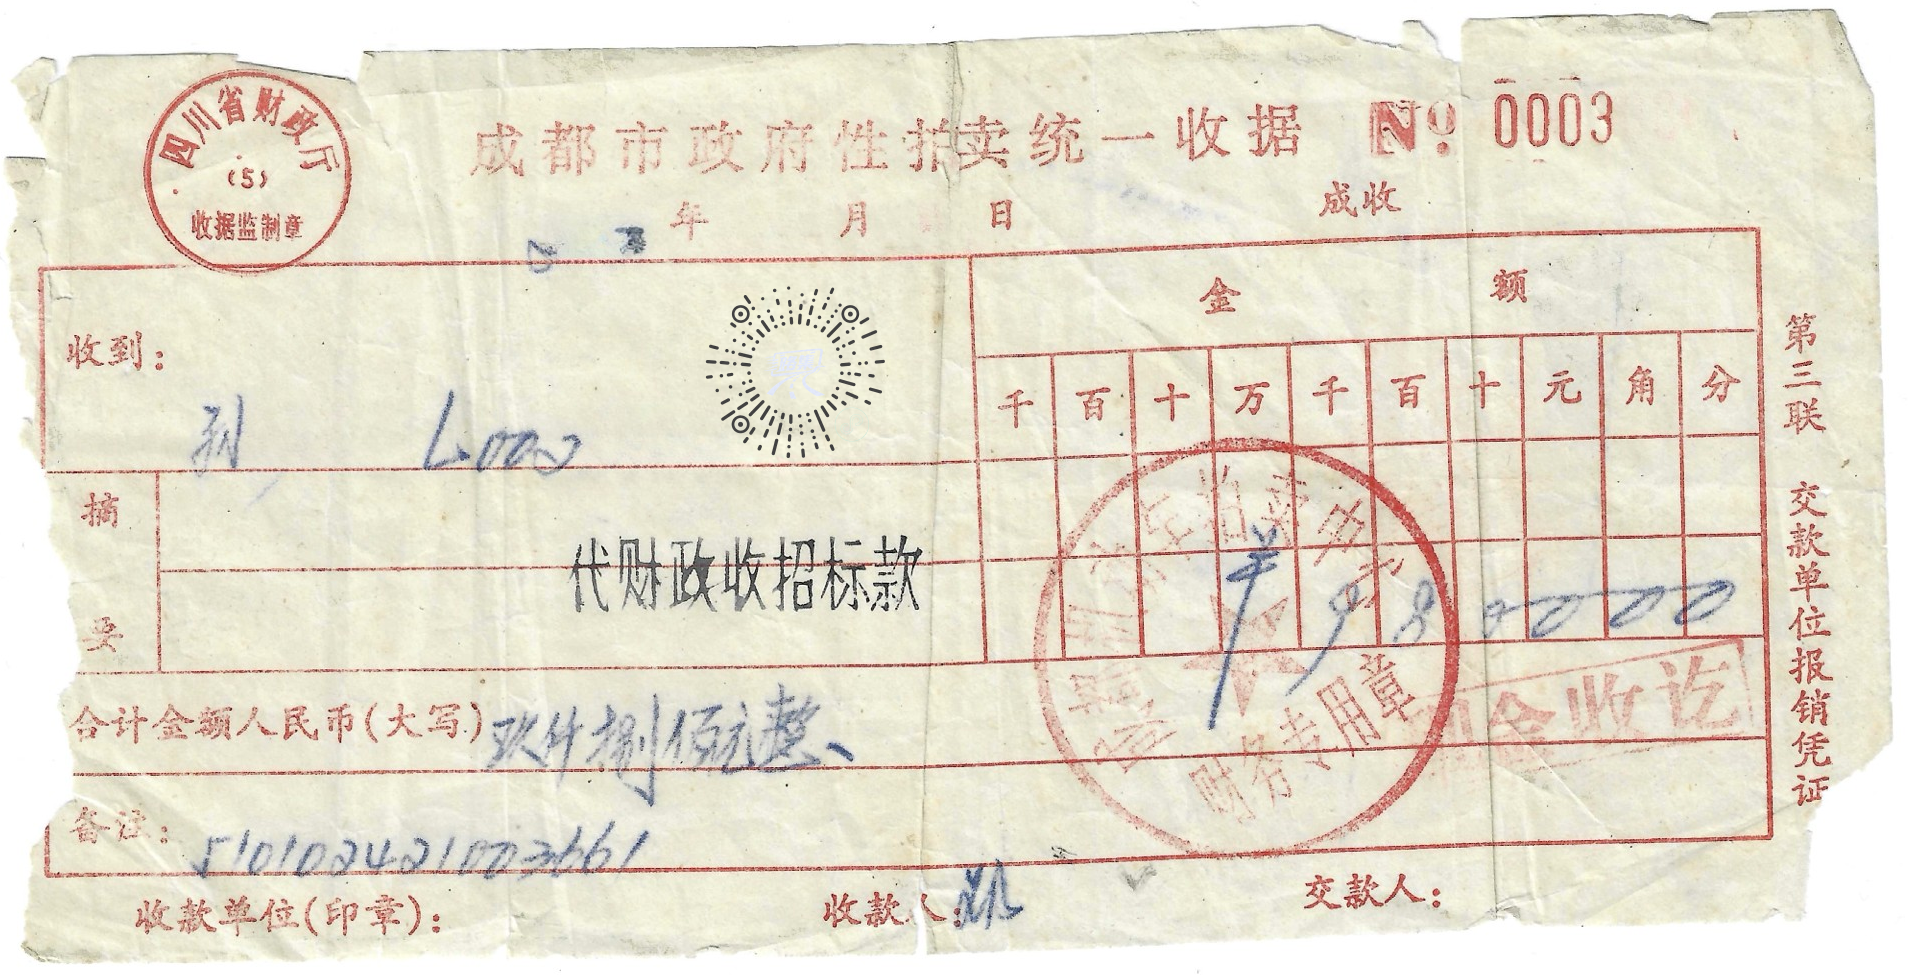 四川省财政厅
(5)
收据监制章
成都市政府性拍卖统一收据 № 0003
年 月 日 成收
收到:
金 额
千 百 十 万 千 百 十 元 角 分
L000
摘要
代财政收招标款
¥ 9800000
合计金额人民币(大写) 玖仟捌佰元整
现金收讫
财务专用章
备注: 510102421003661
收款单位(印章): 收款人: 交款人:
第三联 交款单位报销凭证